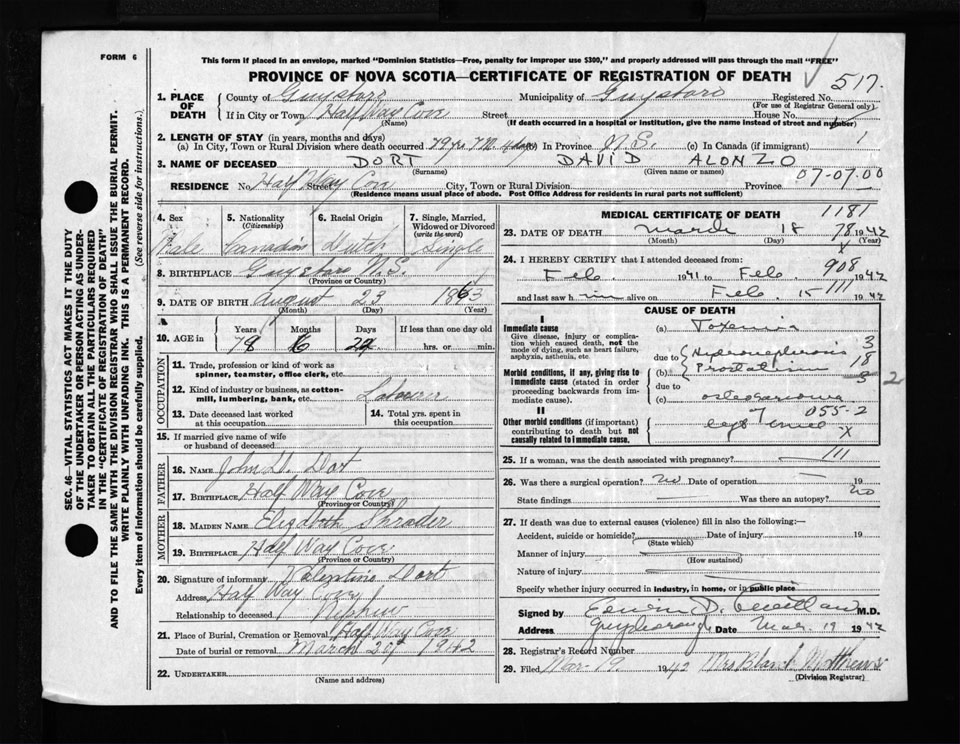 FORM 6
This form if placed in an envelope, marked "Dominion Statistics—Free, penalty for improper use $300," and properly addressed will pass through the mail "FREE"
PROVINCE OF NOVA SCOTIA—CERTIFICATE OF REGISTRATION OF DEATH
517.
SEC. 46—VITAL STATISTICS ACT MAKES IT THE DUTY
OF THE UNDERTAKER OR PERSON ACTING AS UNDER-
TAKER TO OBTAIN ALL THE PARTICULARS REQUIRED
IN THE "CERTIFICATE OF REGISTRATION OF DEATH"
AND TO FILE THE SAME WITH THE DIVISION REGISTRAR WHO SHALL ISSUE THE BURIAL PERMIT.
WRITE PLAINLY WITH UNFADING INK. THIS IS A PERMANENT RECORD.
Every item of information should be carefully supplied. (See reverse side for instructions.)
1. PLACE OF DEATH
County of Guysboro Municipality of Guysboro Registered No.
(For use of Registrar General only)
If in City or Town Half Way Cove Street House No.
(Name) (If death occurred in a hospital or institution, give the name instead of street and number)
2. LENGTH OF STAY (in years, months and days)
(a) In City, Town or Rural Division where death occurred (b) In Province N.S. (c) In Canada (if immigrant)
3. NAME OF DECEASED DORT DAVID ALONZO
(Surname) (Given name or names)
07-07.00
RESIDENCE No. Half Way Cove Street City, Town or Rural Division Province
(Residence means usual place of abode. Post Office Address for residents in rural parts not sufficient)
4. Sex 5. Nationality 6. Racial Origin 7. Single, Married,
(Citizenship) Widowed or Divorced
(write the word)
Male Canadian Dutch Single
8. BIRTHPLACE Guysboro N.S.
(Province or Country)
9. DATE OF BIRTH August 23 1863
(Month) (Day) (Year)
10. AGE in Years Months Days If less than one day old
78 6 24 hrs. or min.
OCCUPATION
11. Trade, profession or kind of work as
spinner, teamster, office clerk, etc.
12. Kind of industry or business, as cotton-
mill, lumbering, bank, etc. Labourer
13. Date deceased last worked
at this occupation
14. Total yrs. spent in
this occupation
15. If married give name of wife
or husband of deceased
FATHER
16. NAME John D. Dort
17. BIRTHPLACE Half Way Cove
(Province or Country)
MOTHER
18. MAIDEN NAME Elizabeth Shrader
19. BIRTHPLACE Half Way Cove
(Province or Country)
20. Signature of informant Valentine Dort
Address Half Way Cove
Relationship to deceased Nephew
21. Place of Burial, Cremation or Removal Half Way Cove
Date of burial or removal March 20 1942
22. UNDERTAKER
(Name and address)
MEDICAL CERTIFICATE OF DEATH 1181
23. DATE OF DEATH March 18 78 1942
(Month) (Day) (Year)
x
24. I HEREBY CERTIFY that I attended deceased from: 908
Feb 1941 to Feb. 1942
and last saw him alive on Feb 15 111 1942
CAUSE OF DEATH
I
Immediate cause
Give disease, injury or complica-
tion which caused death, not the
mode of dying, such as heart failure,
asphyxia, asthenia, etc.
(a) Toxemia 3
due to
Hydronephrosis 18
Morbid conditions, if any, giving rise to
immediate cause (stated in order
proceeding backwards from im-
mediate cause).
(b) 3 2
due to
(c)
II
Other morbid conditions (if important)
contributing to death but not
causally related to immediate cause.
055-2
x
25. If a woman, was the death associated with pregnancy? 111
26. Was there a surgical operation? no Date of operation 19
State findings Was there an autopsy? no
27. If death was due to external causes (violence) fill in also the following:—
Accident, suicide or homicide? Date of injury 19
(State which)
Manner of injury
(How sustained)
Nature of injury
Specify whether injury occurred in industry, in home, or in public place
Signed by M.D.
Address Guysborough Date Mar. 19 1942
28. Registrar's Record Number
29. Filed Mar. 19 1942 Mrs Blanch Matthews
(Division Registrar)